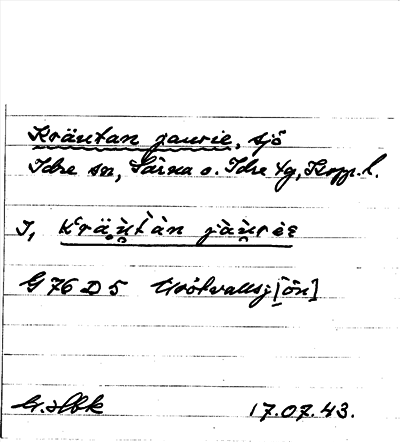 Kräutan jaurie, sjö
Idre sn, Särna o. Idre tg, Kopp. l.
I, Kräu̯tàn jàu̯rėe
G 76 D 5 Grötvallsj[ön]
17.07.43.